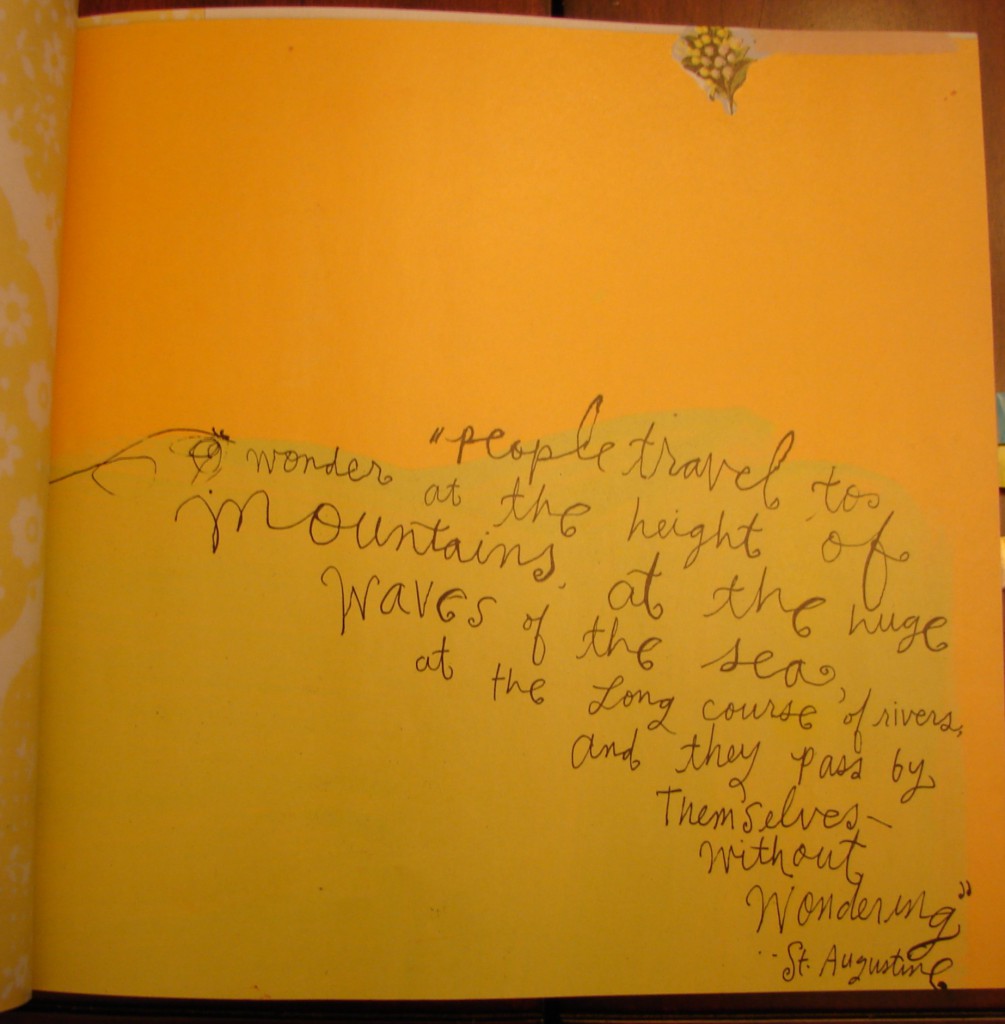 "people travel to
wonder at the height of
mountains, at the huge
waves of the sea,
at the Long course of rivers,
and they pass by
Themselves—
without
Wondering"
-- St. Augustine